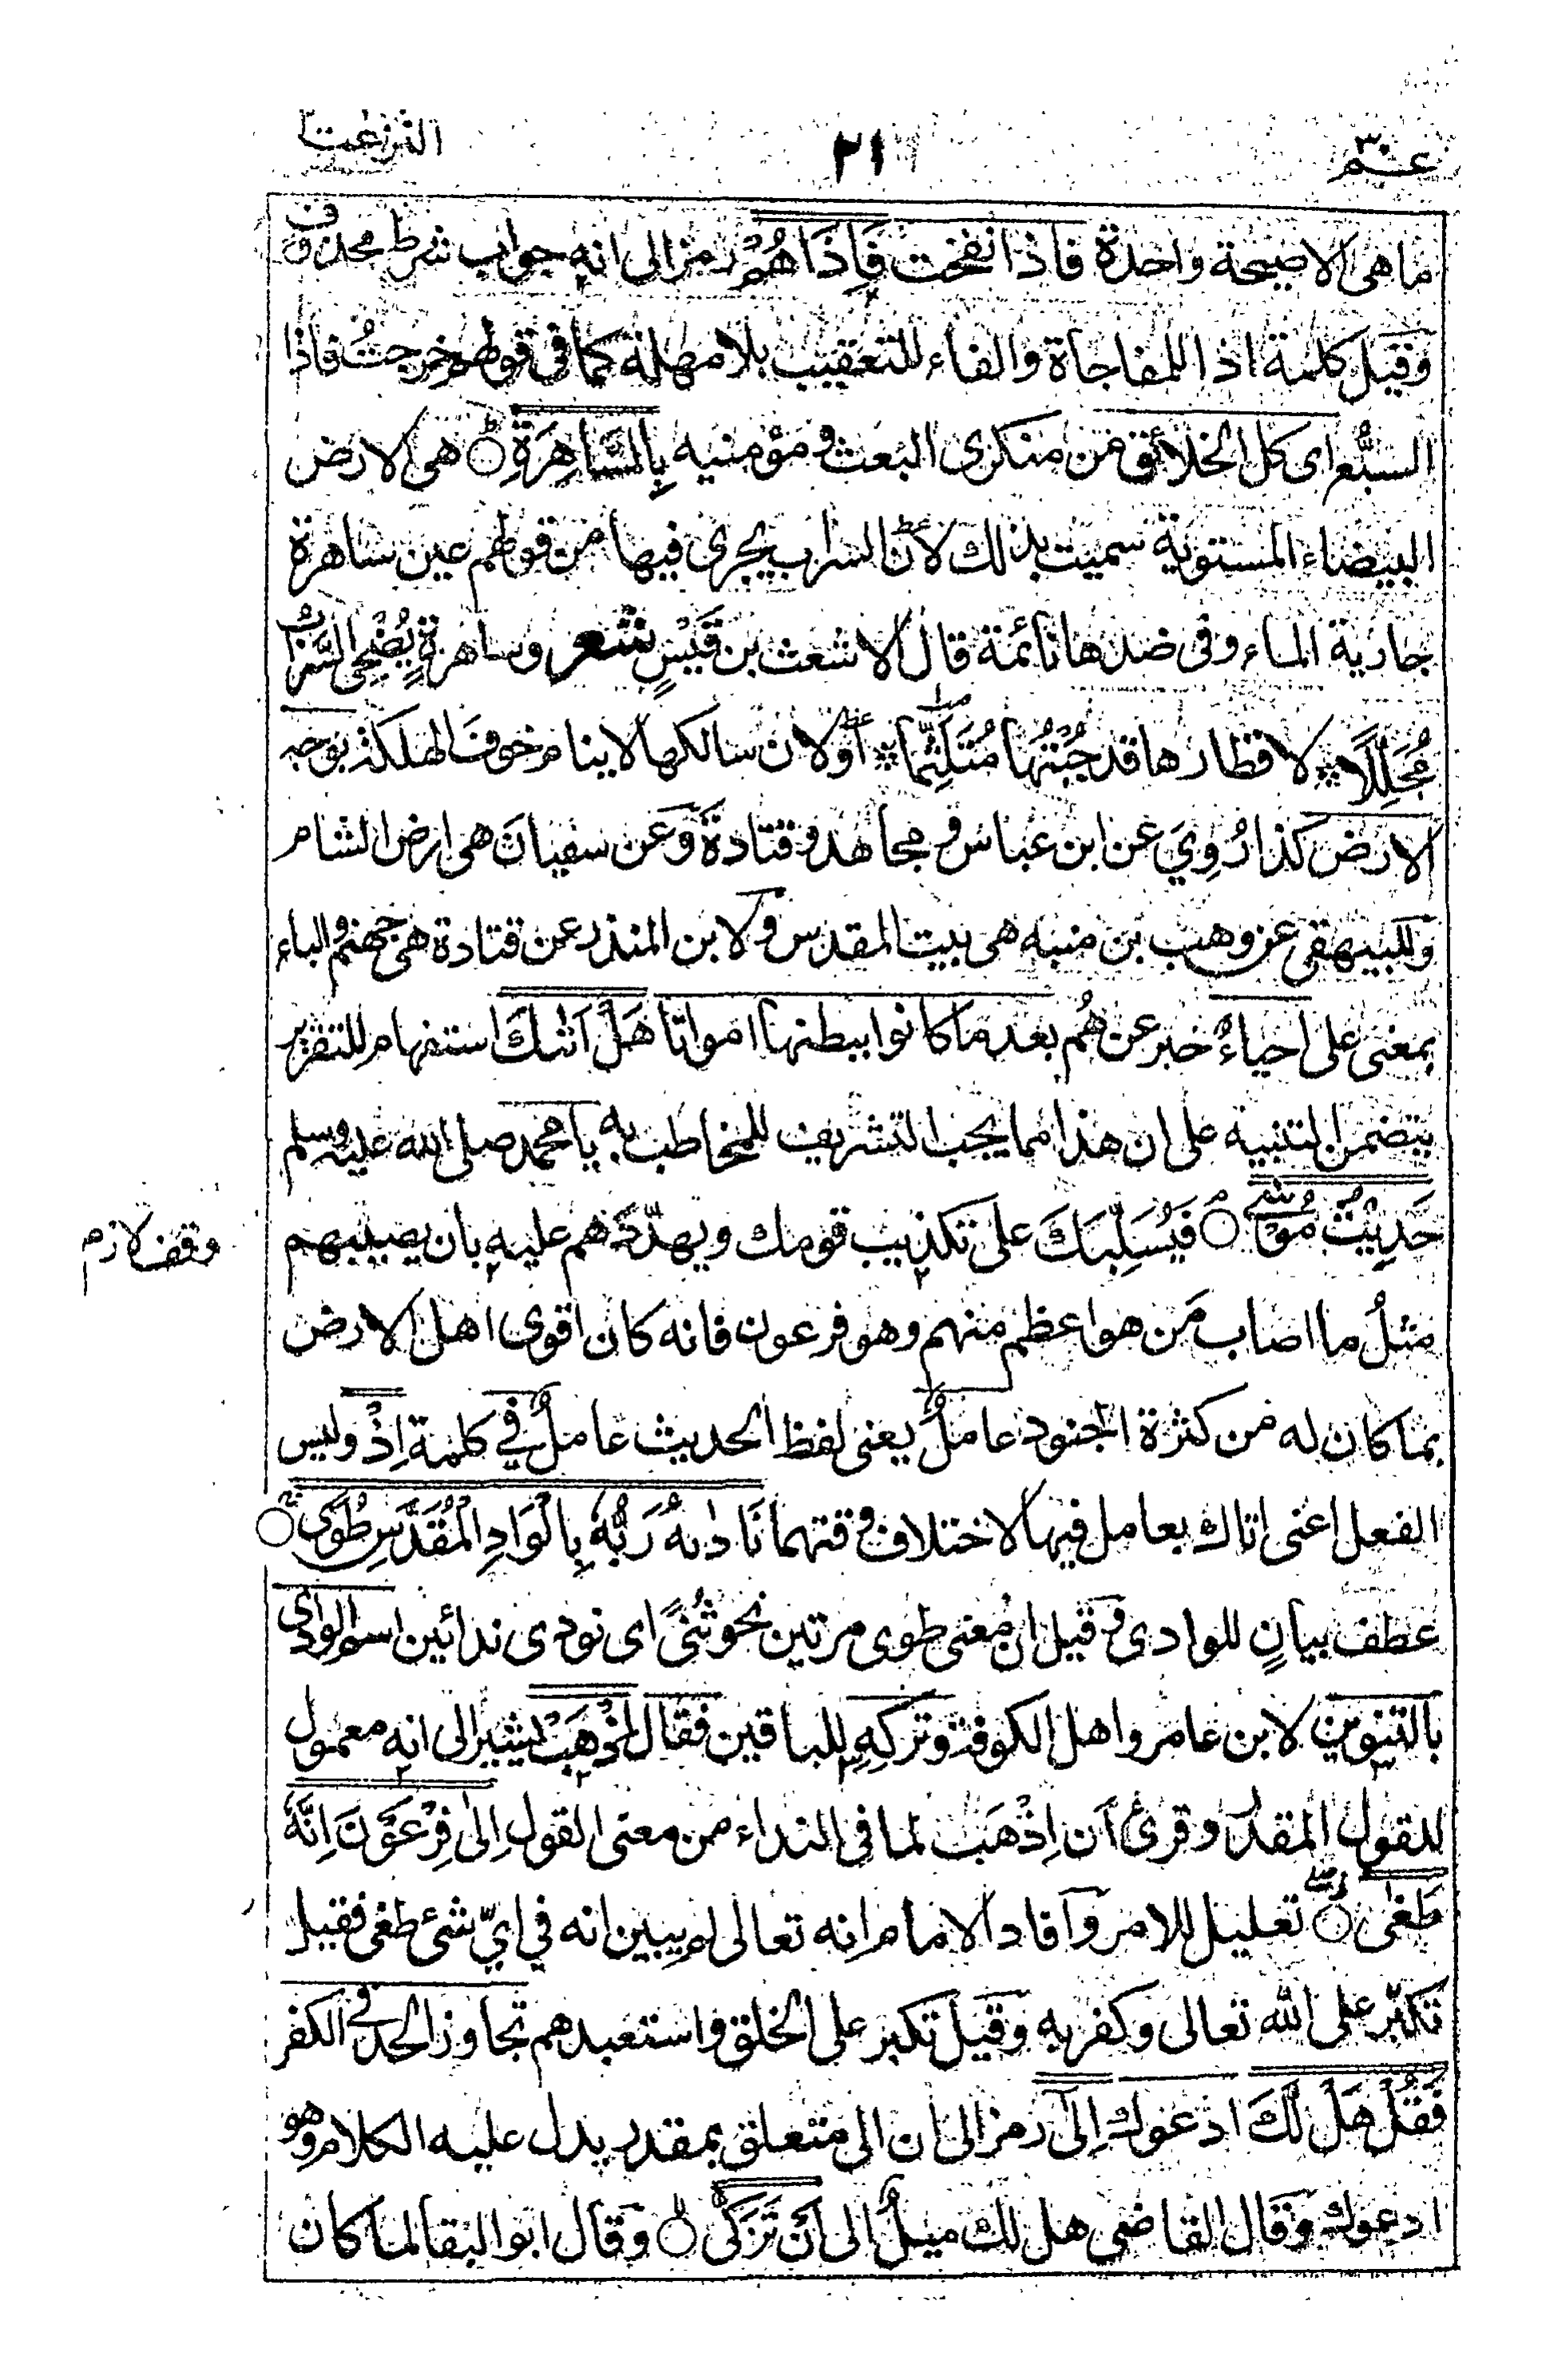 عـــم ٣٠
٢١
النزعت
ما هى الا صيحة واحدة فاذا نفخت فَإِذَا هُمْ رمز الى انه جواب شرط محذوف
وقيل كلمة اذا للمفاجاة والفاء للتعقيب بلا مهلة كما فى قولهم خرجتُ فاذا
السبُع اى كل الخلائق من منكرى البعث و مؤمنيه بِالسَّاهِرَةِ ۝ هى الارض
البيضاء المستوية سميت بذلك لان السراب يجرى فيها من قولهم عين ساهرة
جارية الماء وفى ضدها نائمة قال الاشعث بن قَيْسٍ شعر وساهرةٍ يُضْحِى السَّرَابُ
مُجَلِّلًا لاقطارها قد جُبْتُهَا مُتَلَثِّمًا أولان سالكها لا ينام خوف الهلكة بوجه
الارض كذا رُوِيَ عن ابن عباس و مجاهد و قتادة وعن سفيان هى ارض الشام
وللبيهقى عن وهب بن منبه هى بيت المقدس و لابن المنذر عن قتادة هى جهنم والباء
بمعنى على احياءٌ خبر عن هُم بعد ما كانوا ببطنها امواتا هَلْ اَتٰىكَ استفهام للتقرير
يتضمن التنبيه على ان هذا مما يجب التشريف للمخاطب به يا محمد صلى الله عليه وسلم
حَدِيْثُ مُوْسٰى ۝ فَيُسَلِّيكَ على تكذيب قومك ويهدّدَهم عليه بان يصيبهم
وقف لازم
مثلُ ما اصاب مَن هو اعظم منهم وهو فرعون فانه كان اقوى اهل الارض
بما كان له من كثرة الجنود عاملٌ يعنى لفظ الحديث عاملٌ في كلمة اِذْ وليس
الفعل اعنى اتاك بعامل فيها لاختلاف وقتهما نَادٰىهُ رَبُّهٗ بِالْوَادِ الْمُقَدَّسِ طُوًى ۝
عطف بيانٍ للوادى و قيل ان معنى طوى مرتين نحو ثُنًى اى نودى ندائين اسم الوادى
بالتنوين لابن عامر واهل الكوفة وتركهِ للباقين فقال اِذْهَبْ يشير الى انه معمول
للقول المقدر وقرئ أن اِذْهَبْ لما فى النداء من معنى القول اِلٰى فِرْعَوْنَ اِنَّهٗ
طَغٰى ۝ تعليل للامر وآفاد الامام انه تعالى لم يبين انه في ايّ شئ طغى فقيل
تكبّر على الله تعالى وكفر به وقيل تكبر على الخلق واستعبدهم تجاوز الحد فى الكفر
فَقُلْ هَلْ لَّكَ ادعوك اِلٰٓى رمز الى ان الى متعلق بمقدر يدل عليه الكلام وهو
ادعوك وقال القاضى هل لك ميلٌ الى اَنْ تَزَكّٰى ۝ وقال ابو البقا لما كان